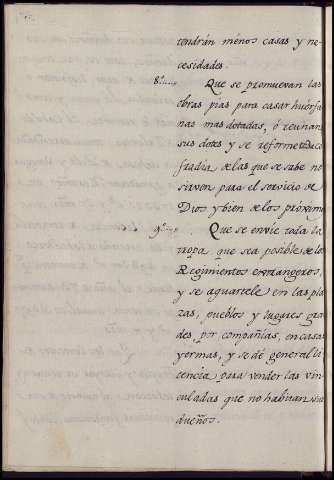 tendrán ménos casas y ne-
cesidades.
8º Que se promuevan las
obras pias para casar huérfa
nas mas dotadas, ó reunan
sus dotes y se reformen co
fradia de las que se sabe no
sirven para el servicio de
Dios y bien de los próximo
9º Que se envie toda la
tropa que sea posible de los
Regimientos extrangeros,
y se aquartele en las pla
zas, pueblos y lugares gra
des por compañias, en casas
yermas, y se dé general li
cencia para vender las vin
culadas que no habitan sus
dueños.